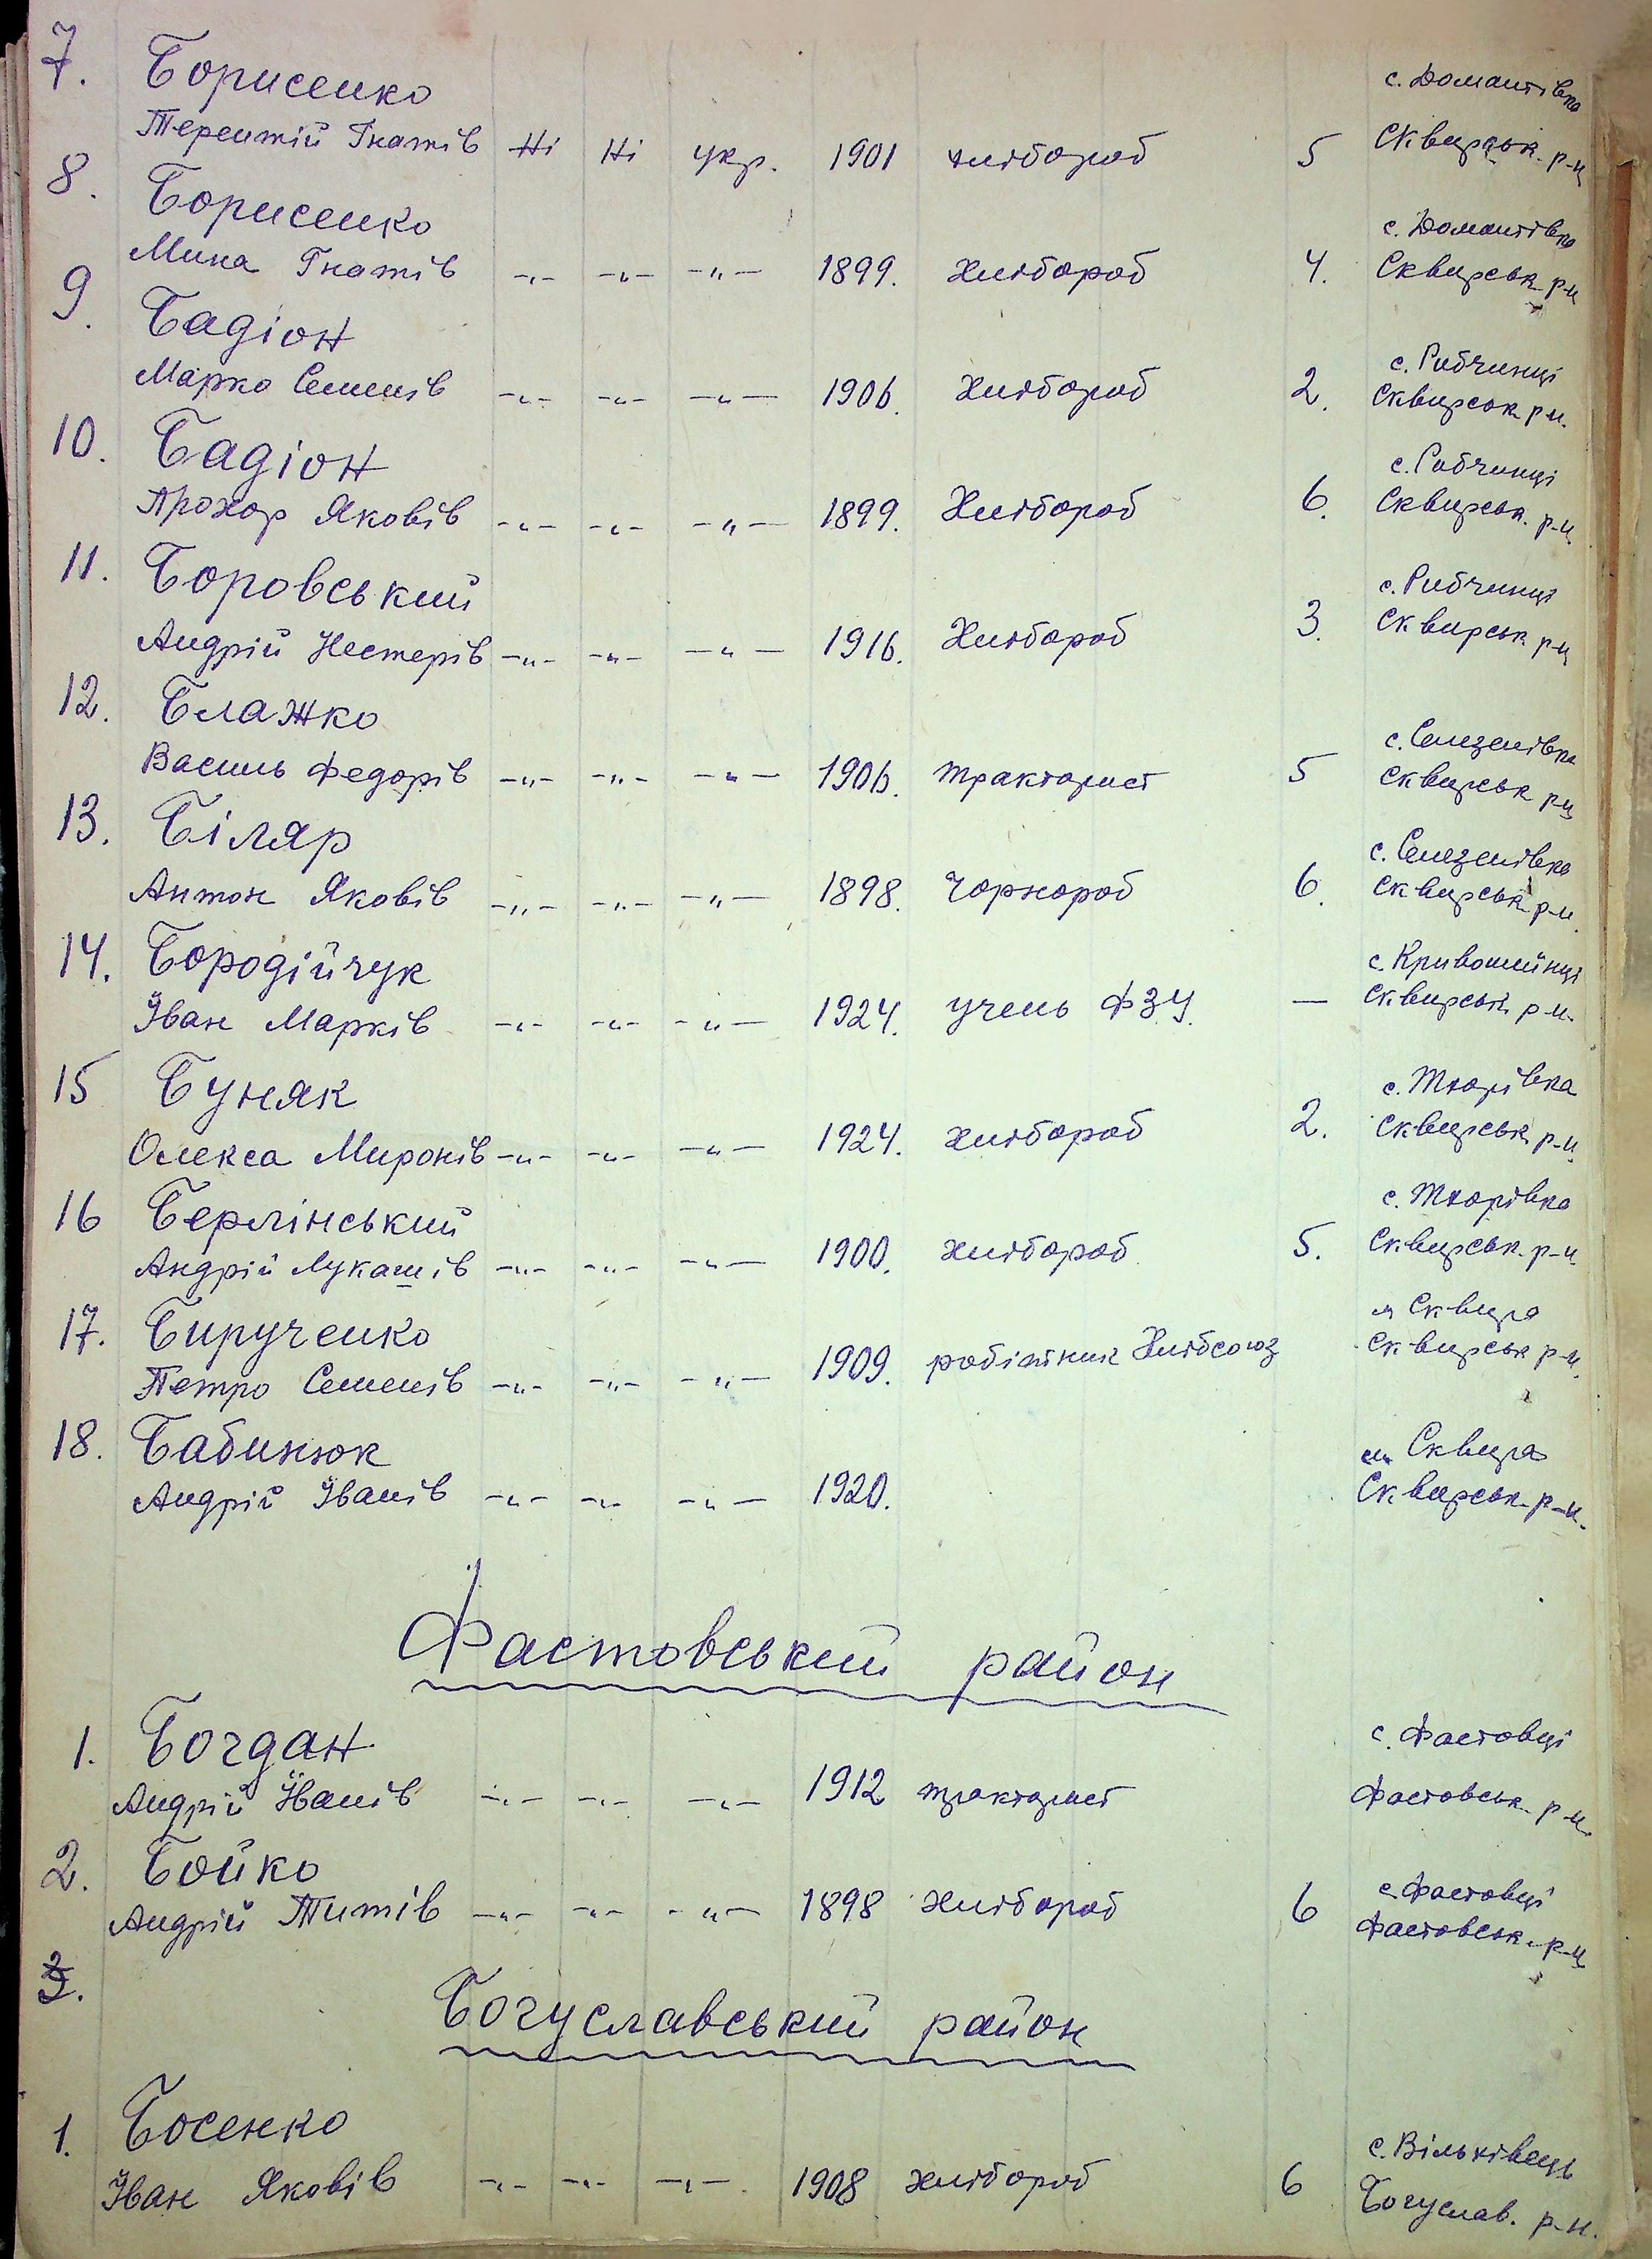 7. Борисенко с. Домантівка
Терентій Гнатів Ні Ні укр. 1901 хлібороб 5 Сквирськ. р-н
8. Борисенко с. Домантівка
Мина Гнатів -"- -"- -"- 1899. Хлібороб 4. Сквирськ. р-н
9. Бадіон с. Рибчинці
Марко Семенів -"- -"- -"- 1906. Хлібороб 2. Сквирськ р-н.
10. Бадіон с. Рибчинці
Прохор Яковів -"- -"- -"- 1899. Хлібороб 6. Сквирськ. р-н
11. Боровський с. Рибчинці
Андрій Нестерів -"- -"- -"- 1916. Хлібороб 3. Сквирськ р-н
12. Блажко с. Селезенівка
Василь Федорів -"- -"- -"- 1906. тракторист 5 Сквирськ р-н
13. Біляр с. Селезенівка
Антон Яковів -"- -"- -"- 1898. Чорнороб 6. Сквирськ р-н.
14. Бородійчук с. Кривошийнці
Іван Марків -"- -"- -"- 1924. учень ФЗУ. — Сквирськ р-н.
15 Буняк с. Тхорівка
Олекса Миронів -"- -"- -"- 1924. хлібороб 2. Сквирськ р-н.
16 Берлінський с. Тхорівка
Андрій Лукашів -"- -"- -"- 1900. хлібороб 5. Сквирськ. р-н
17. Бирученко м Сквира
Петро Семенів -"- -"- -"- 1909. робітник Хлібсоюз Сквирськ р-н.
18. Бабинюк м. Сквира
Андрій Іванів -"- -"- -"- 1920. Сквирськ. р-н.
Фастовський район
1. Богдан с. Фастовці
Андрій Іванів -"- -"- -"- 1912 тракторист Фастовськ. р-н.
2. Бойко с. Фастовці
Андрій Титів -"- -"- -"- 1898 хлібороб 6 Фастовськ. р-н
3.
Богуславський район
1. Босенко с. Вільхівець
Іван Яковів -"- -"- -"- 1908 хлібороб 6 Богуслав. р-н.